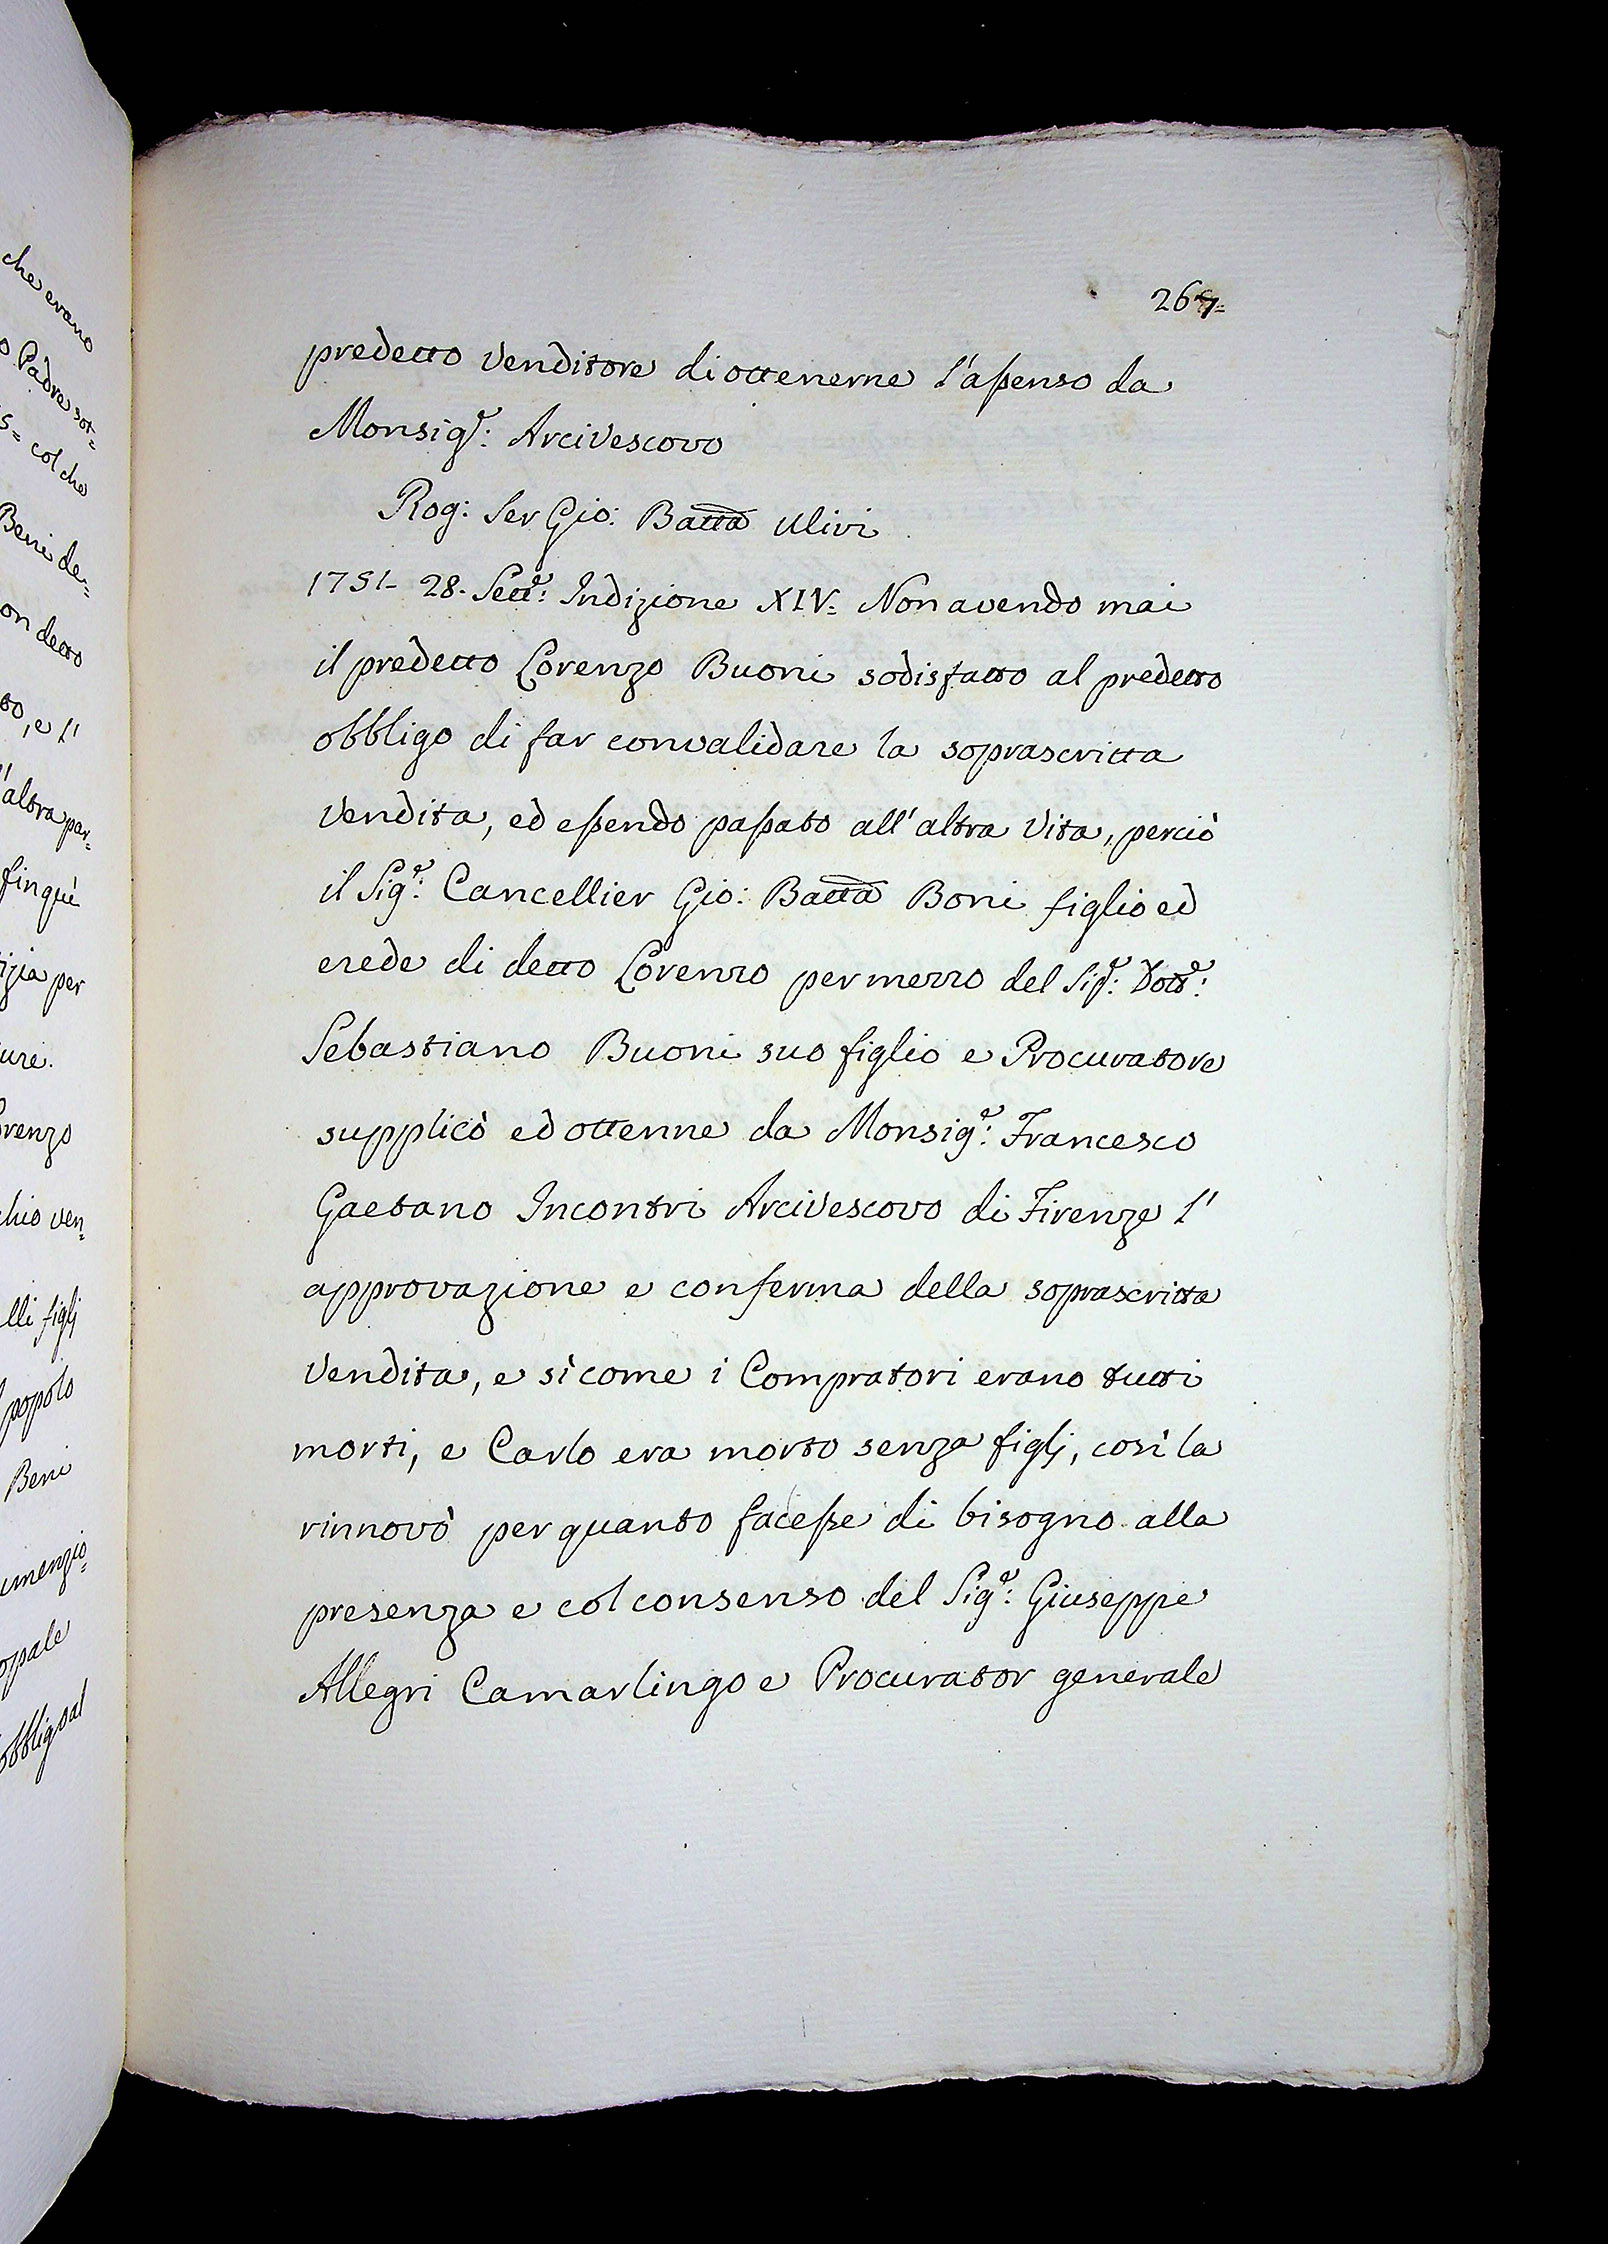 che erano
o Padre sot=
s= col che
Beni de=
on detto
to, e l'
l'altra par=
finquì
izia per
ure.
orenzo
chio ven=
lli figlj
popolo
Beni
umenzio=
opale
obbligo al
267=
predetto Venditore di ottenerne l'aßenso da
Monsig.e: Arcivescovo
Rog: Ser Gio: Batta Ulivi
1751- 28. Sett.e: Indizione XIV= Non avendo mai
il predetto Lorenzo Buoni sodisfatto al predetto
obbligo di far convalidare la soprascritta
Vendita, ed eßendo paßato all'altra Vita, perciò
il Sig.e: Cancellier Gio: Batta Boni figlio ed
erede di detto Lorenzo per mezzo del Sig.e: Dott.e:
Sebastiano Buoni suo figlio e Procuratore
supplicò ed ottenne da Monsig.e: Francesco
Gaetano Incontri Arcivescovo di Firenze l'
approvazione e conferma della soprascritta
Vendita, e sì come i Compratori erano tutti
morti, e Carlo era morto senza figlj, così la
rinnovò per quanto faceße di bisogno alla
presenza e col consenso del Sig.e: Giuseppe
Allegri Camarlingo e Procurator generale